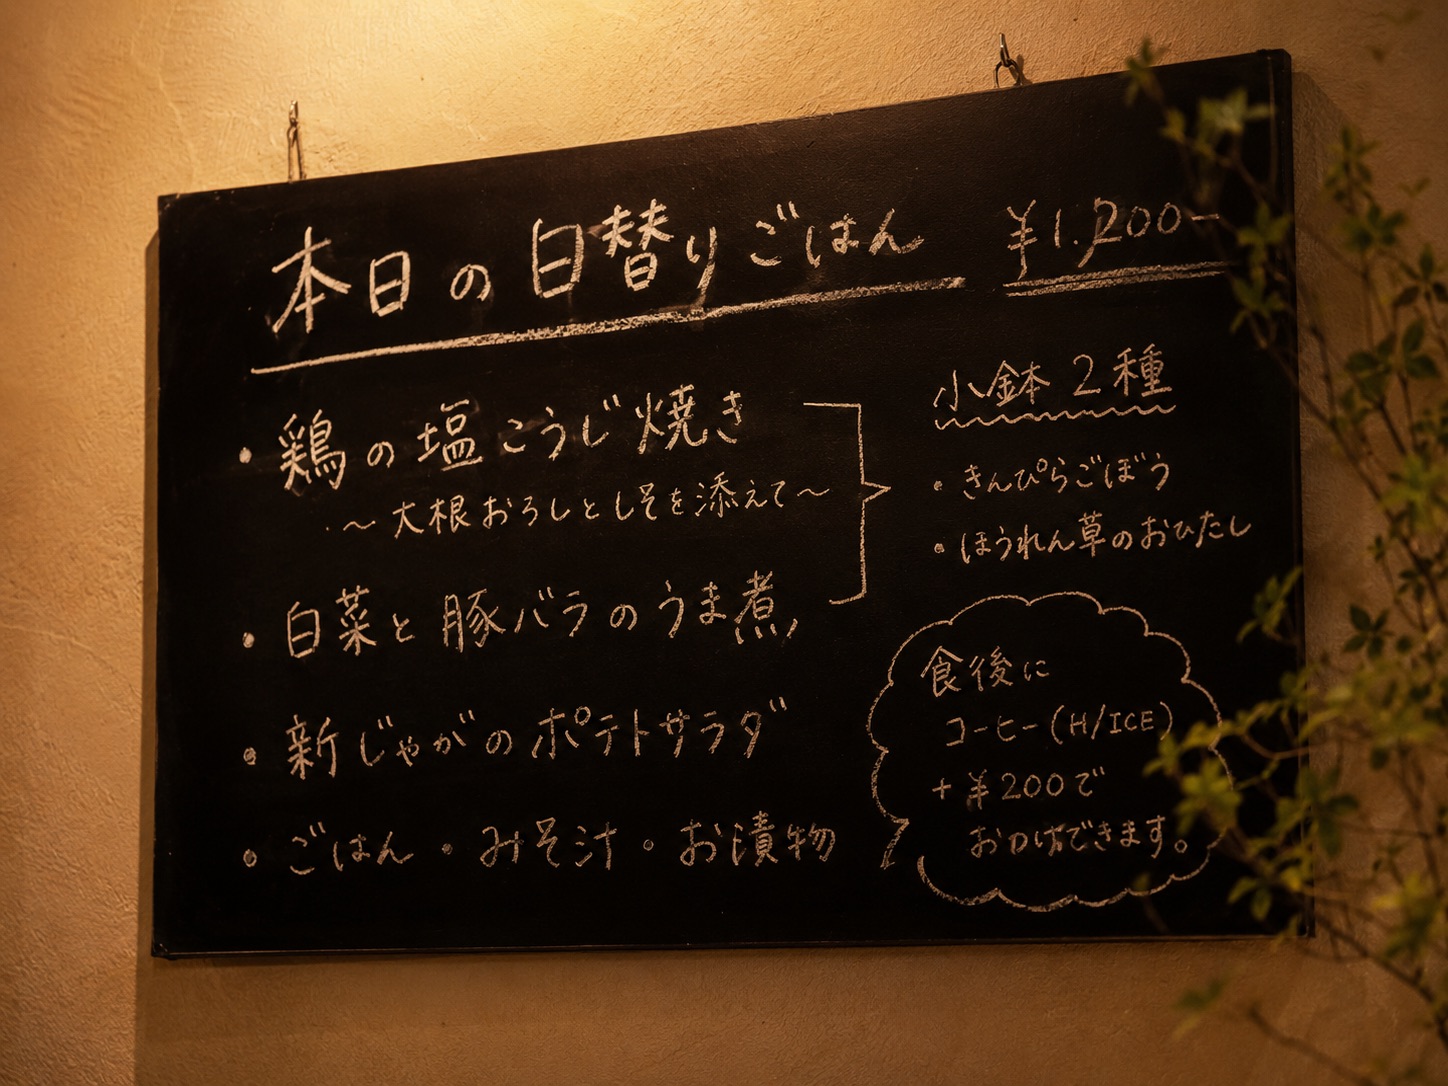 本日の日替りごはん ¥1,200-
・鶏の塩こうじ焼き
〜大根おろしとしそを添えて〜
・白菜と豚バラのうま煮
・新じゃがのポテトサラダ
・ごはん・みそ汁・お漬物
小鉢2種
・きんぴらごぼう
・ほうれん草のおひたし
食後に
コーヒー(H/ICE)
+¥200で
おつけできます。